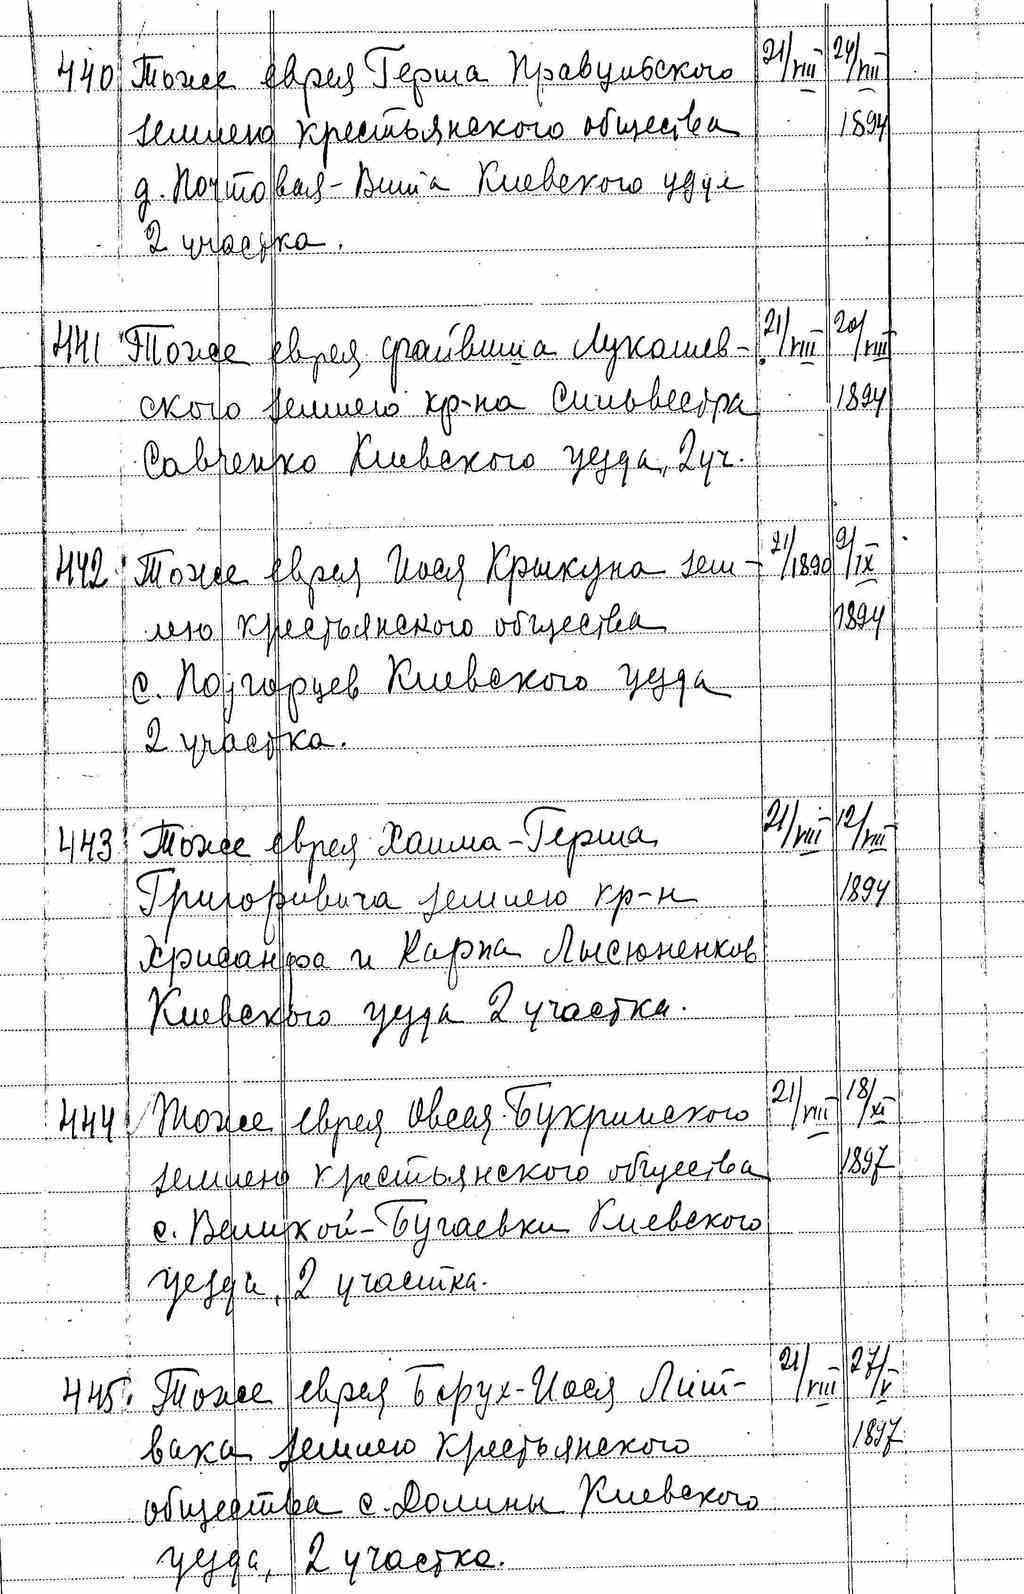 440 Тоже еврея Герша Правумского 21/VIII 24/VIII
землею крестьянского общества 1894
д. Почтовая-Вита Киевского уезда
2 участка.
441 Тоже еврея Файвиша Лукашев- 21/VIII 20/VIII
ского землею кр-на Сильвестра 1894
Савченко Киевского уезда, 2 уч.
442 Тоже еврея Иося Крыкуна зем- 21/1890 9/IX
лею крестьянского общества 1894
с. Подгорцев Киевского уезда
2 участка.
443 Тоже еврея Хаима-Герша 21/VIII 12/VIII
Григоровича землею кр-н 1894
Хрисанфа и Карпа Лысюненков
Киевского уезда 2 участка.
444 Тоже еврея Овсея Букринского 21/VIII 18/XI
землею крестьянского общества 1897
с. Великой-Бугаевки Киевского
уезда, 2 участка.
445. Тоже еврея Борух-Иося Лит- 21/VIII 27/V
вака землею крестьянского 1897
общества с. Долины Киевского
уезда, 2 участка.